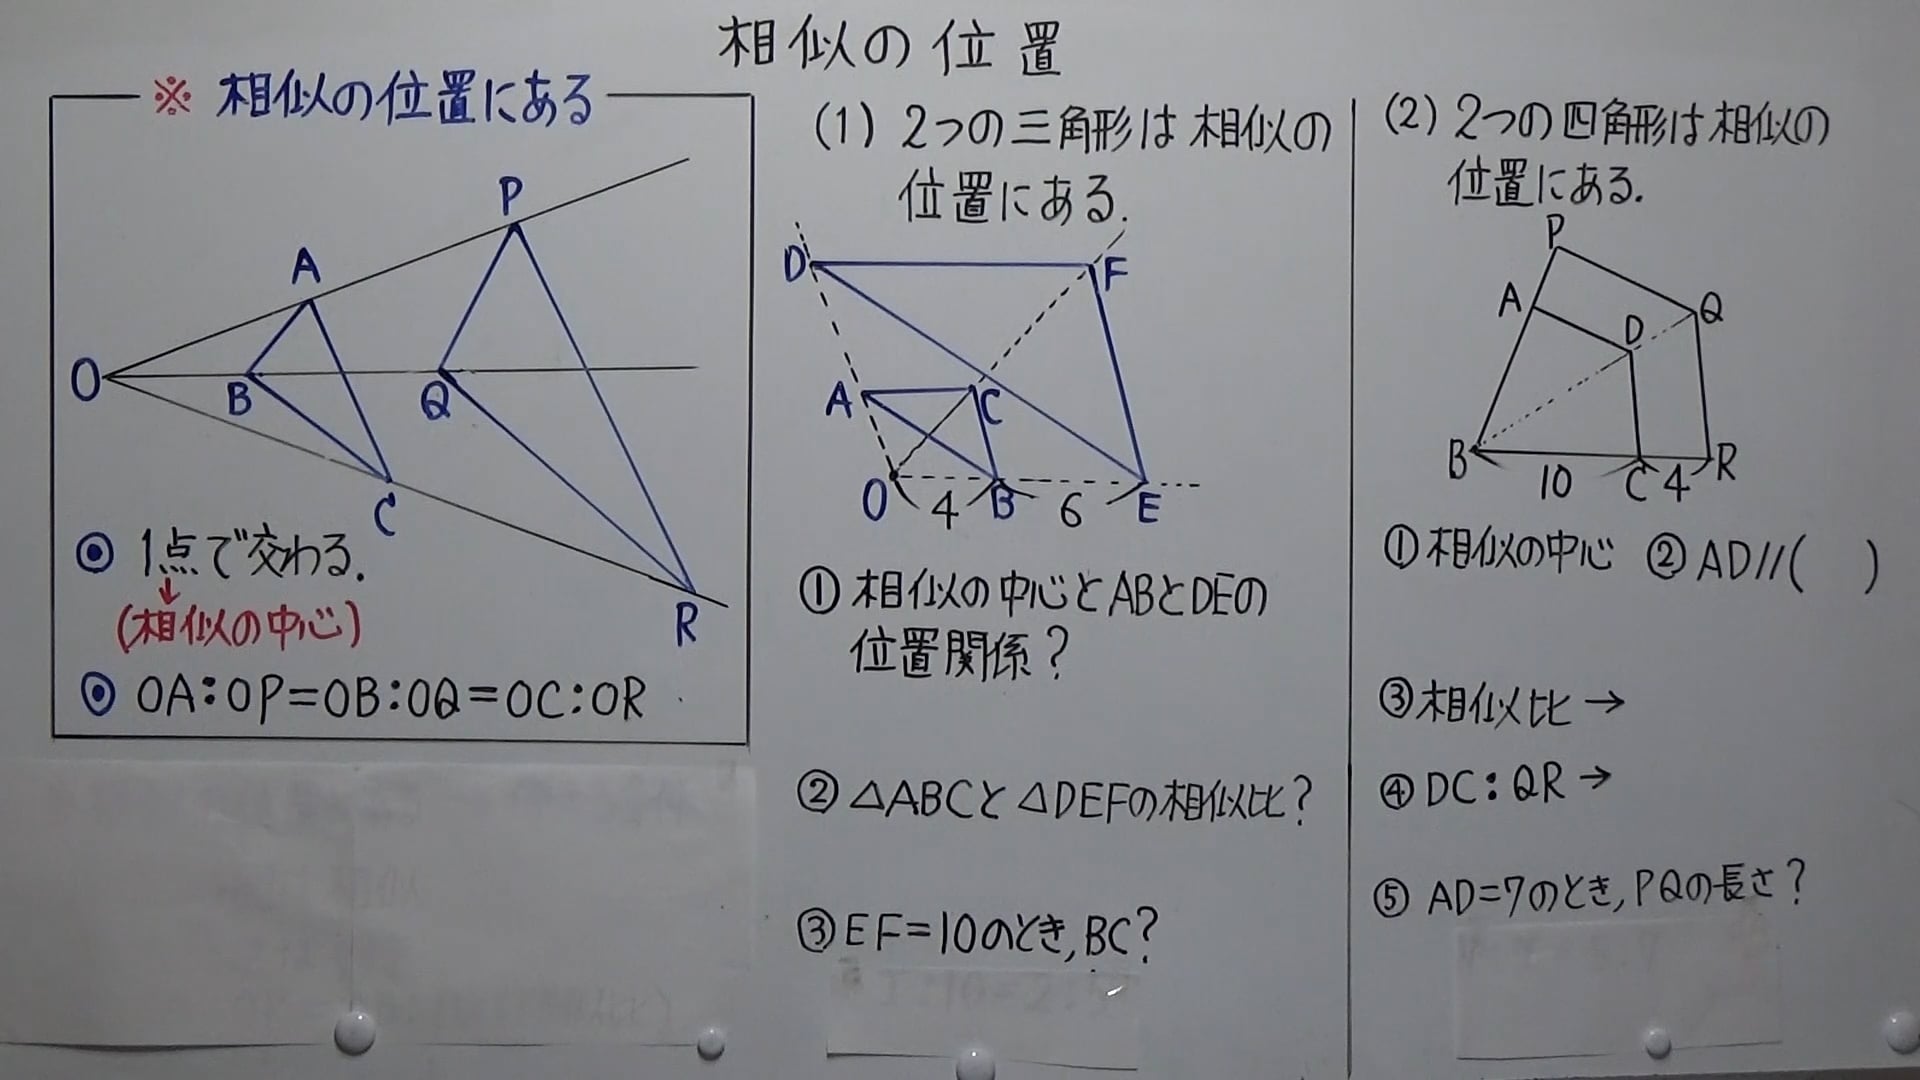 相似の位置
※ 相似の位置にある
P
A
O
B
Q
C
R
◎ 1点で交わる.
↓
(相似の中心)
◎ OA:OP=OB:OQ=OC:OR
(1) 2つの三角形は相似の
位置にある.
D
F
A
C
O
4
B
6
E
① 相似の中心とABとDEの
位置関係?
② △ABCと△DEFの相似比?
③ EF=10のとき, BC?
(2) 2つの四角形は相似の
位置にある.
P
A
Q
D
B
10
C
4
R
① 相似の中心 ② AD//( )
③ 相似比 →
④ DC:QR →
⑤ AD=7のとき, PQの長さ?